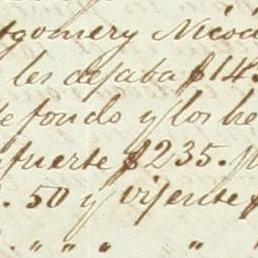 tgomery Nicod
les dejaba $14.
fondo y los he
fuerte $235.
. 50 y vijente $
" " " "